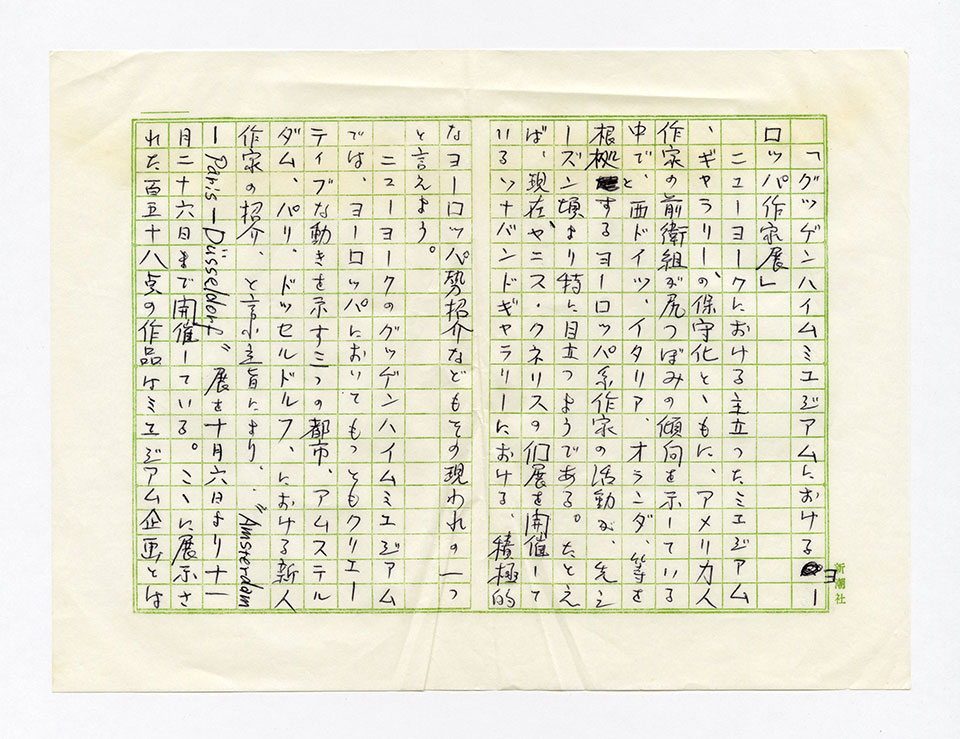 「グッゲンハイムミュゼジアムにおけるヨー
ロッパ作家展」
ニューヨークにおける主立ったミュゼジアム
、ギャラリーの、保守化とゝもに、アメリカ人
作家の前衛組が尻つぼみの傾向を示している
中で、西ドイツ、イタリア、オランダ、等を
根拠とするヨーロッパ系作家の活動が、先シ
ーズン頃より特に目立つようである。たとえ
ば、現在、ヤニス・クネリスの個展を開催して
いるソナバンドギャラリーにおける、積極的
なヨーロッパ勢招介などもその現われの一つ
と言えよう。
ニューヨークのグッゲンハイムミュゼジアム
では、ヨーロッパにおいてもっともクリエー
ティブな動きを示す三つの都市、アムステル
ダム、パリ、ドッセルドルフ、における新人
作家の招介、と言う主旨により、“Amsterdam
ー Paris ー Düsseldorf” 展を十月六日より十一
月二十六日まで開催している。こゝに展示さ
れた百五十八点の作品はミュゼジアム企画とは
新潮社